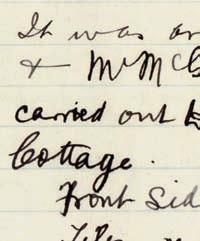 It was ar
& Mr McC
carried out b
Cottage.
Front Sid